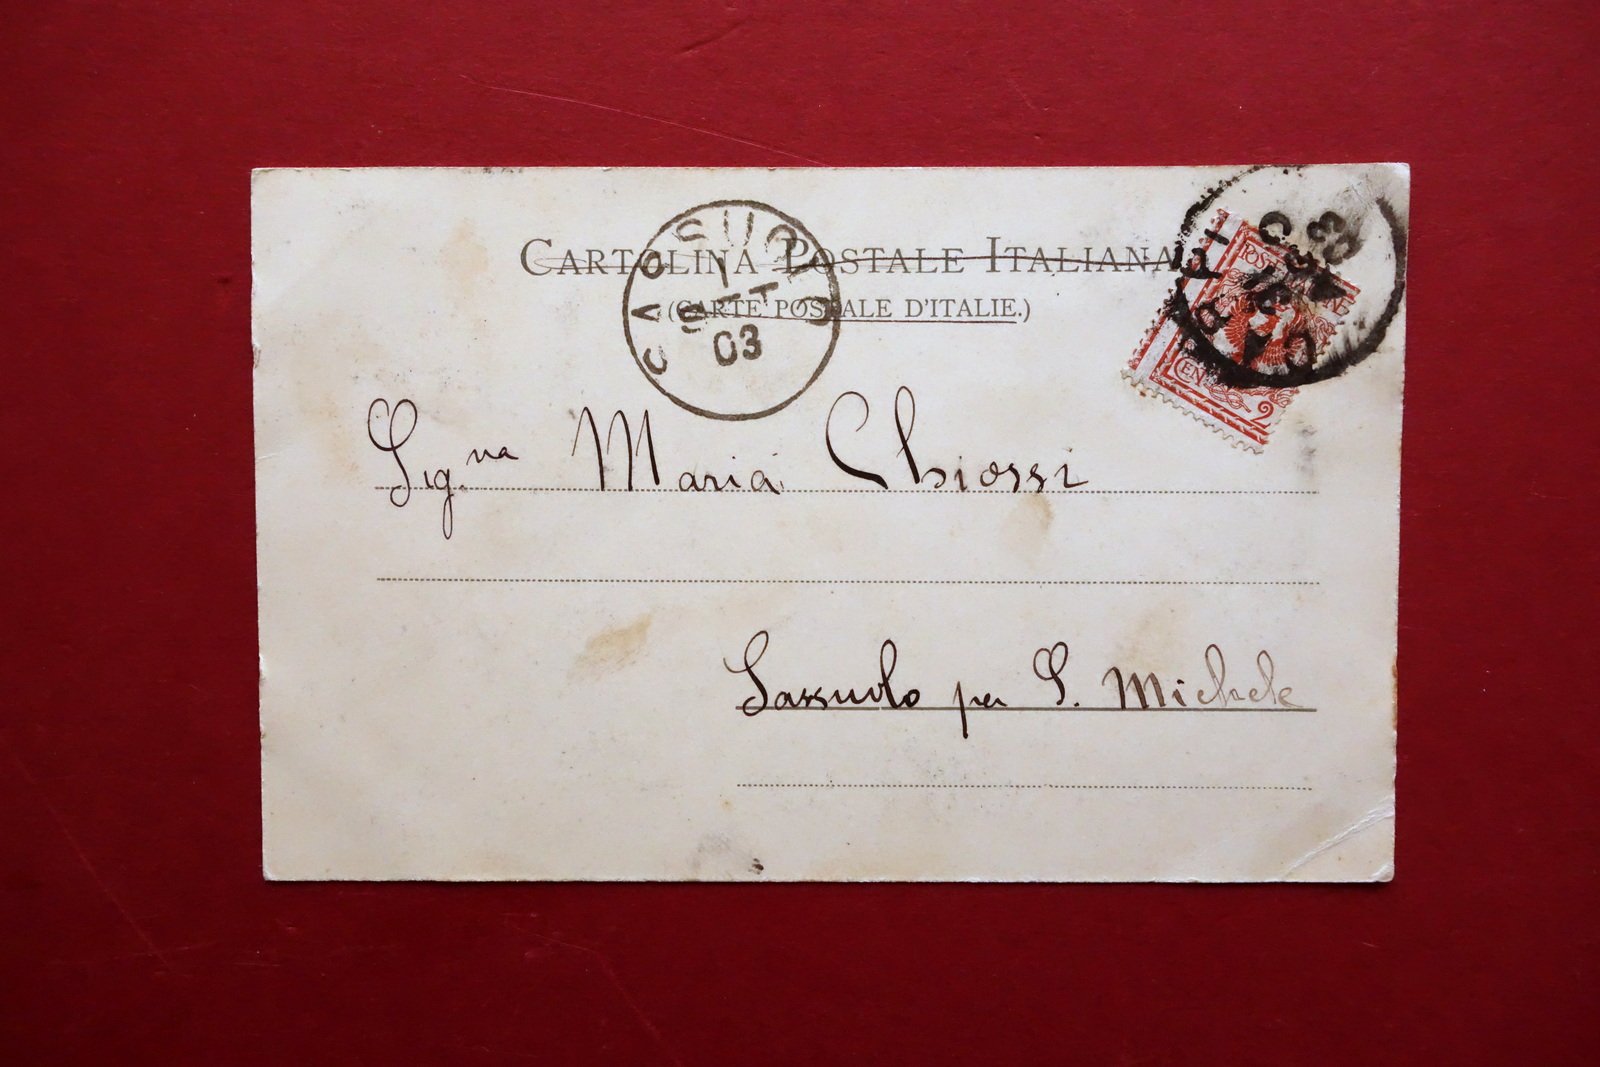 CARTOLINA POSTALE ITALIANA
(CARTE POSTALE D'ITALIE.)
SASSUOLO
1
SETT
03
CARPI
03
POSTE ITALIANE
CENT. 2
Sig.na Maria Chiossi
Sassuolo per S. Michele